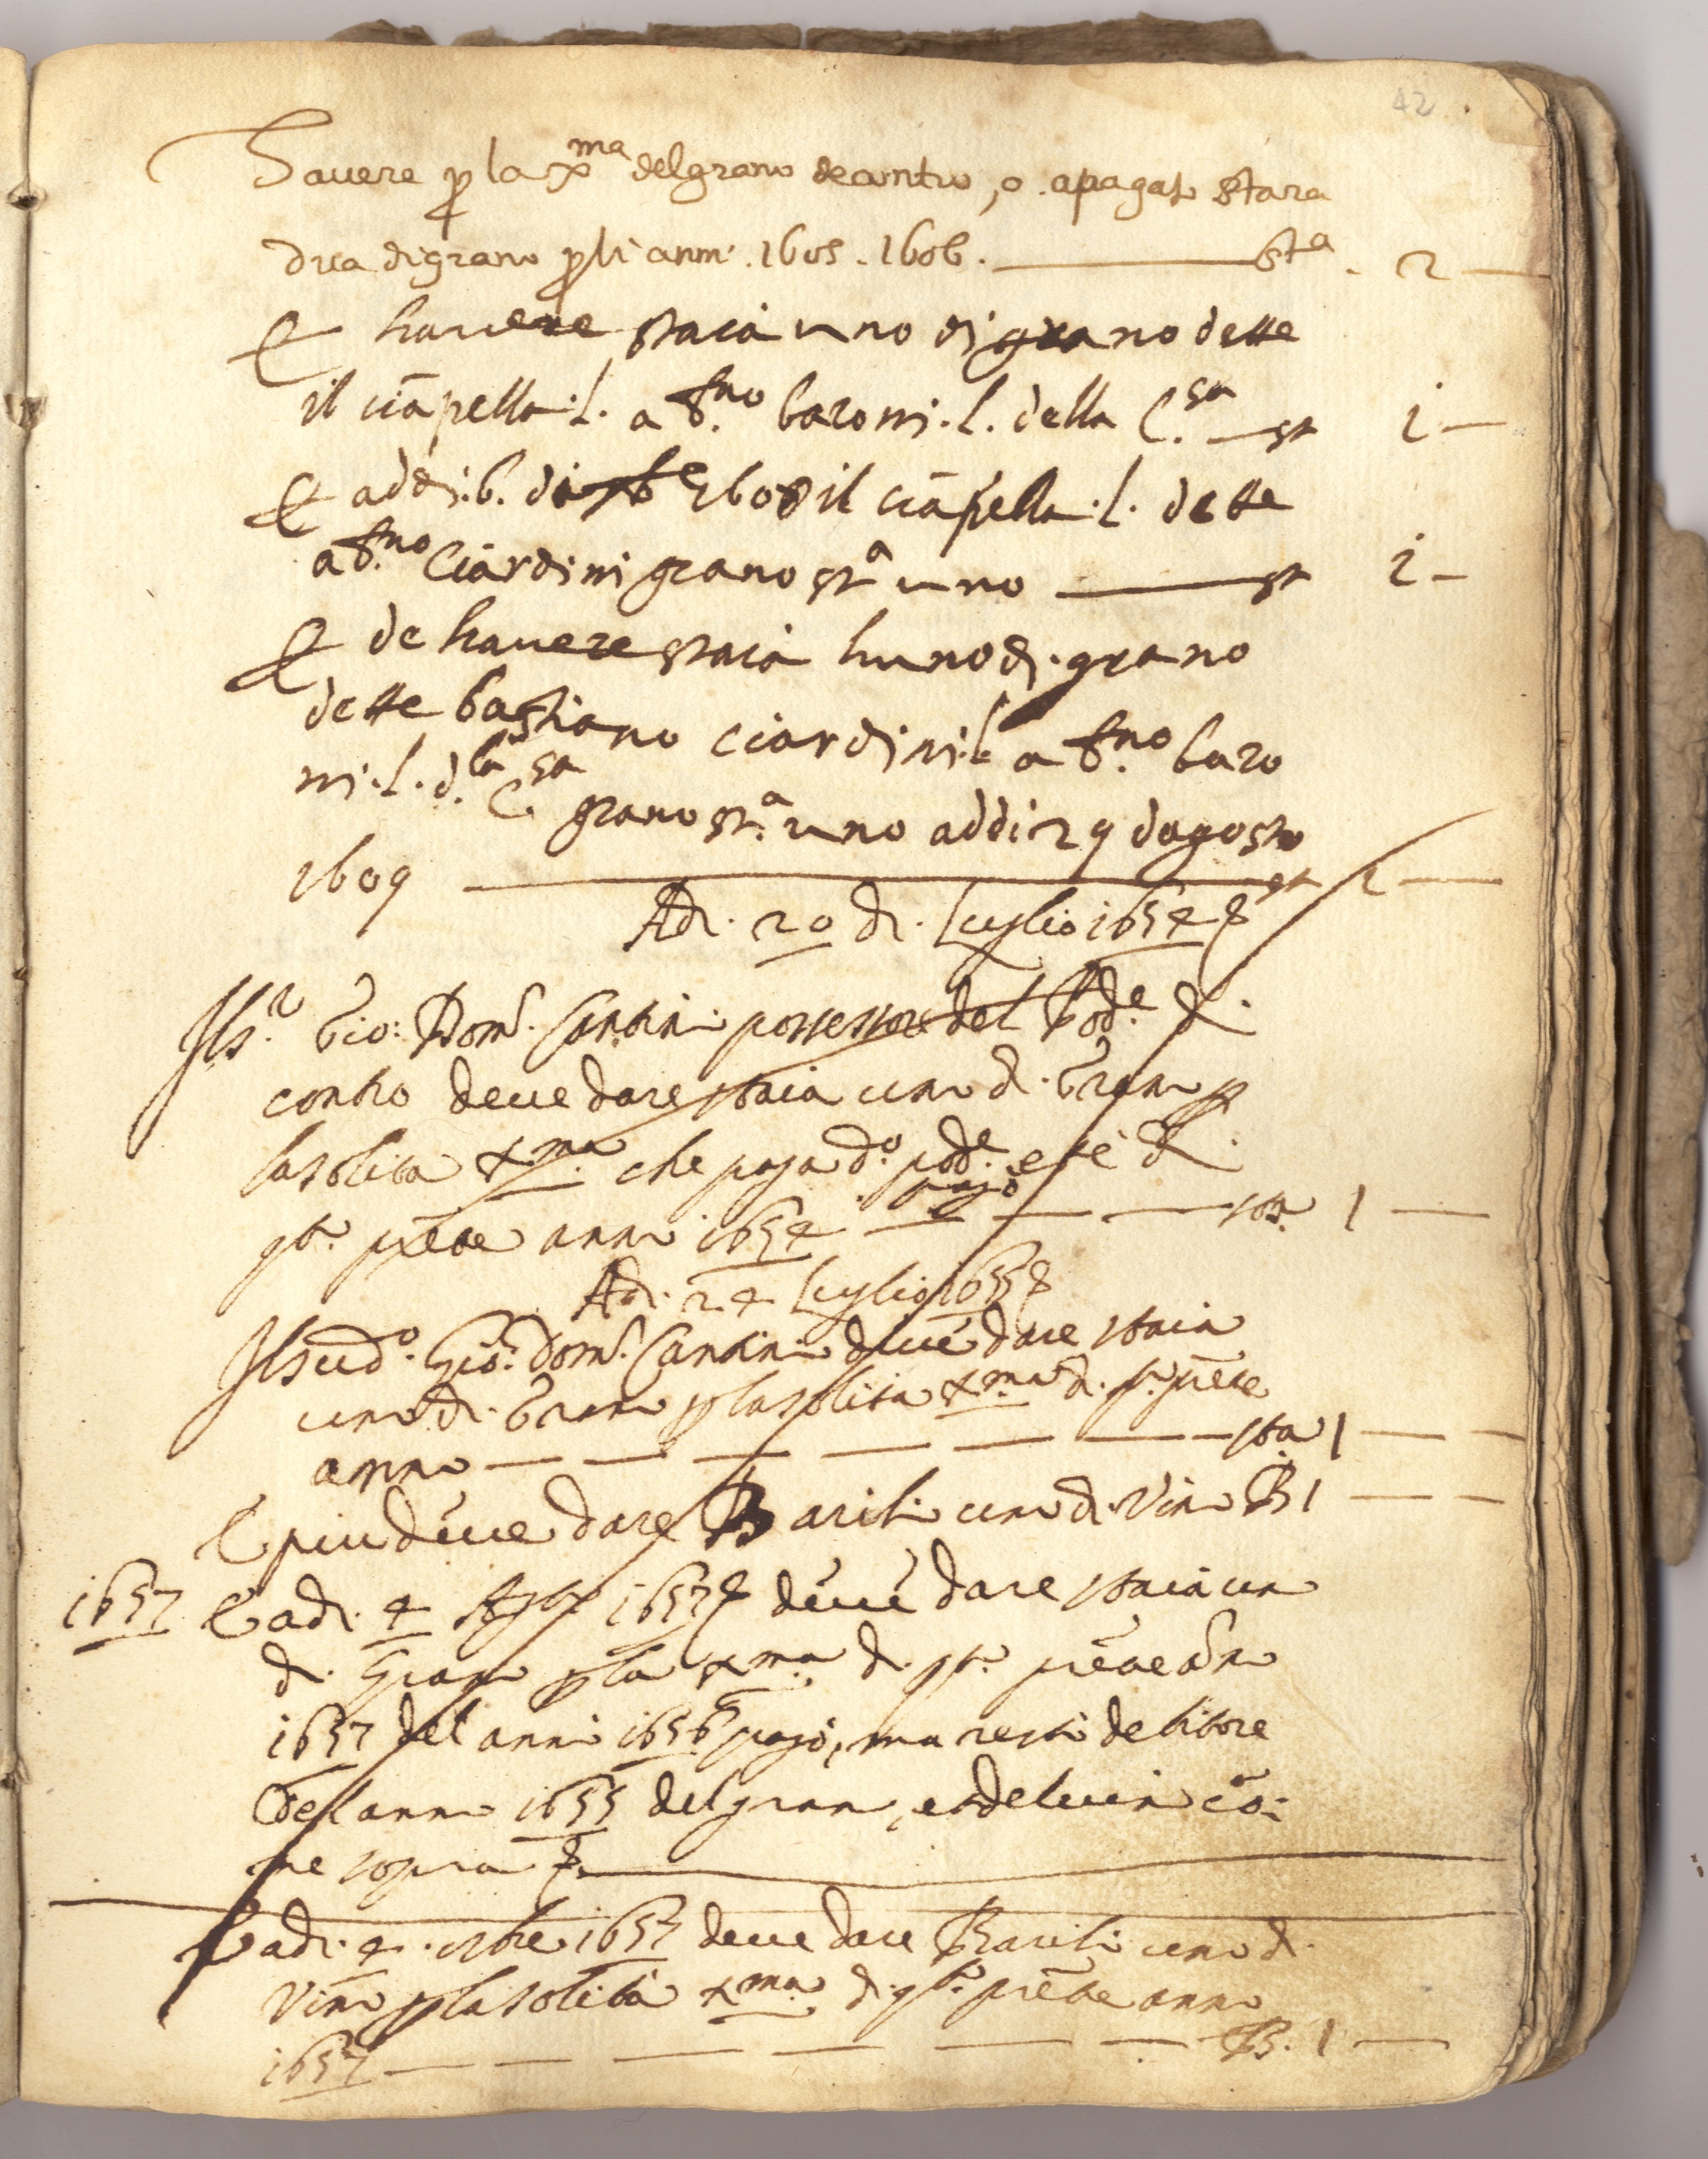 42
D avere p la Xma del grano decontro, o. a pagato stara
dua di grano p li anni. 1605. 1606. ——— sta. 2 —
E havere staia uno di grano dette
il ciapella. L. a stno baroni. L. della C.sa — st 1 —
E addi. 6. di 7bre 1608 il ciapella. L. dette
a stno Ciardini grano sta uno ——— st 1 —
E de havere staia huno di. grano
dette bastiano ciardini. L a stno baro
ni. L. d.la C.sa grano st.a uno addi 29 dagosto
1609 ——— st 1 —
Adi. 20 di. Luglio 1654
Il S.r Gio: Dom.o Santini possessore del Pod.e di
contro deve dare staia uno di. Grano p
la solita Xma che paga d.o pod.e e se di.
pagò
qto. pñte anno 1654 — — — sta. 1 —
Adi. 24 Luglio 1655
Il sud.o Gio: Dom.o Santini deve dare staia
uno di. Grano p la solita Xma di. q.o pñte
anno — — — — — — — sta 1 — —
E piu deve dare Barili uno di Vino B 1 — —
1657 E adi. 4 Agto 1657 deve dare staia un
di. Grano p la Xma di. qto. pñte año
1657 del anno 1656 pagò, ma resta debitore
del anno 1655 del grano, et del vino co-
me sopra ———
E adi. 4. 9bre 1657 deve dare Barili uno di.
Vino p la solita Xma di qto. pñte anno
1657 — — — — — — B. 1 —